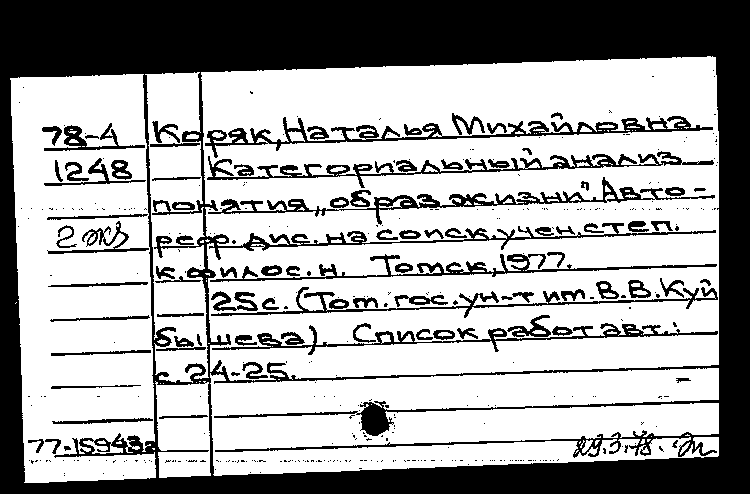 78-4 Коряк, Наталья Михайловна.
1248 Категориальный анализ
понятия „образ жизни". Авто-
2 экз реф. дис. на соиск. учен. степ.
к. филос. н. Томск, 1977.
25с. (Том. гос. ун-т им. В.В. Куй
бышева). Список работ авт.:
с. 24-25.
77-15943а 29.3.78.